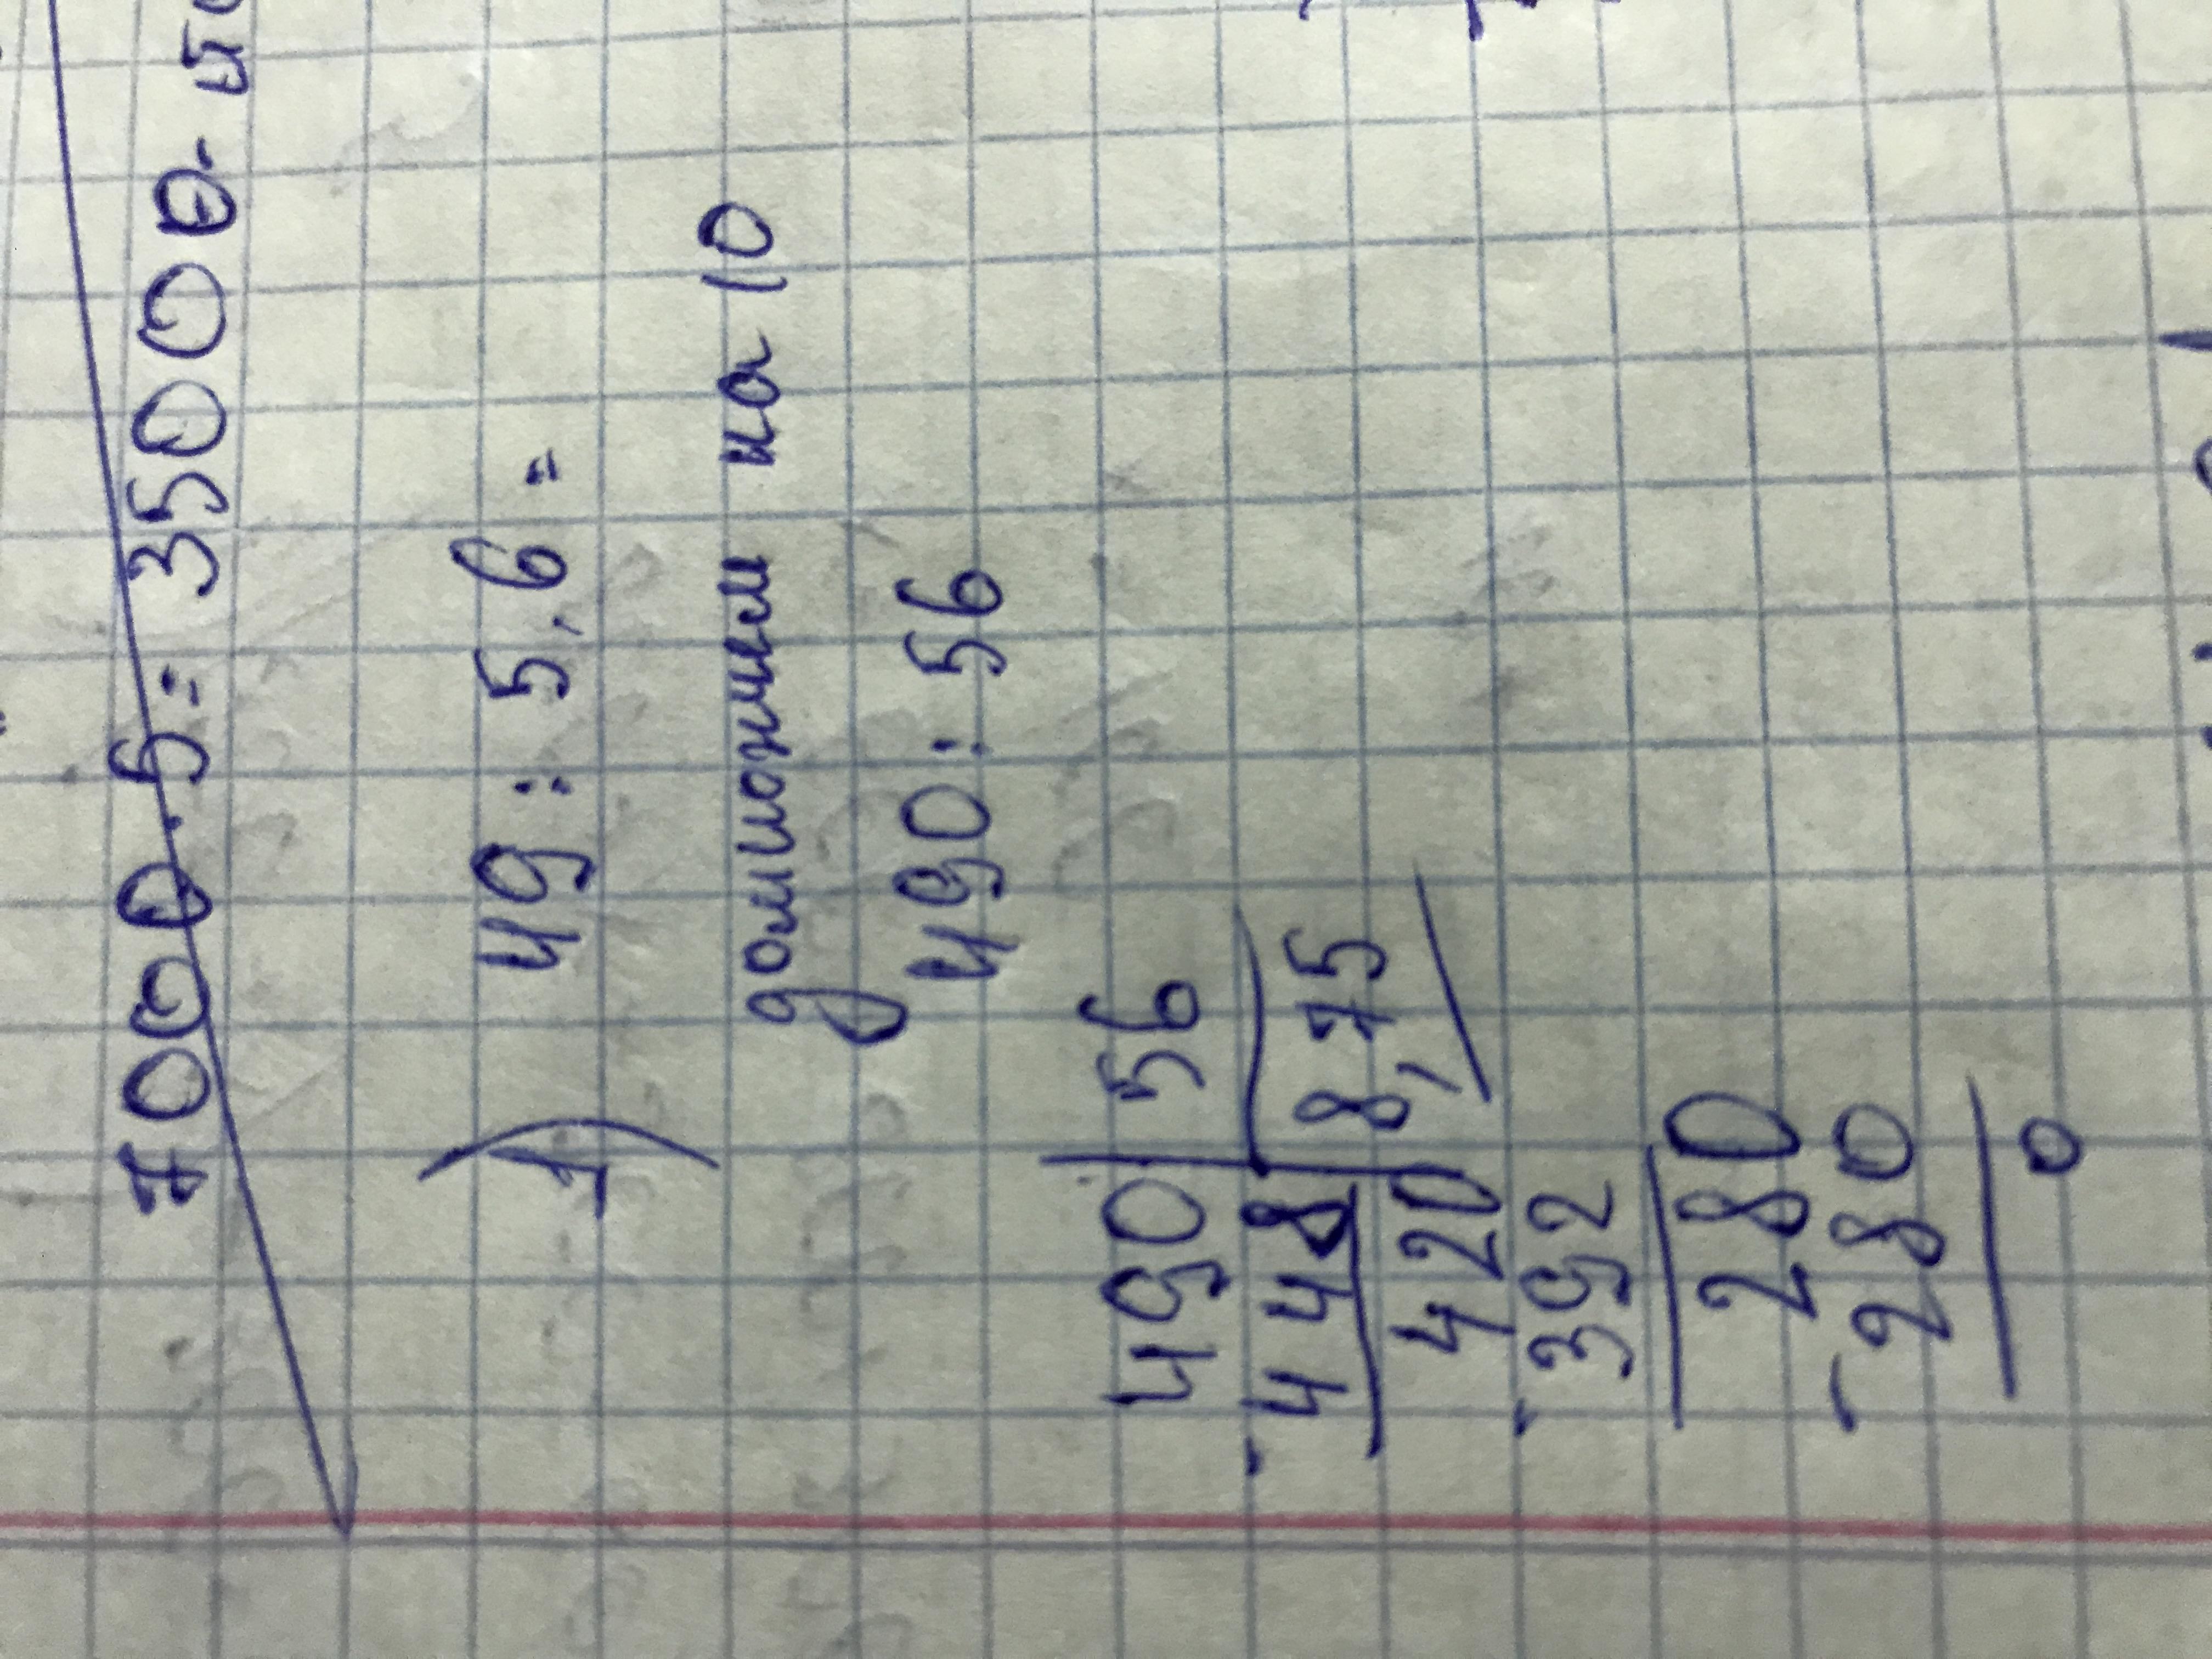 7000.5=35000-
1) 49:5,6=
домножим на 10
490:56
490|56
-448|8,75
420
-392
280
-280
0